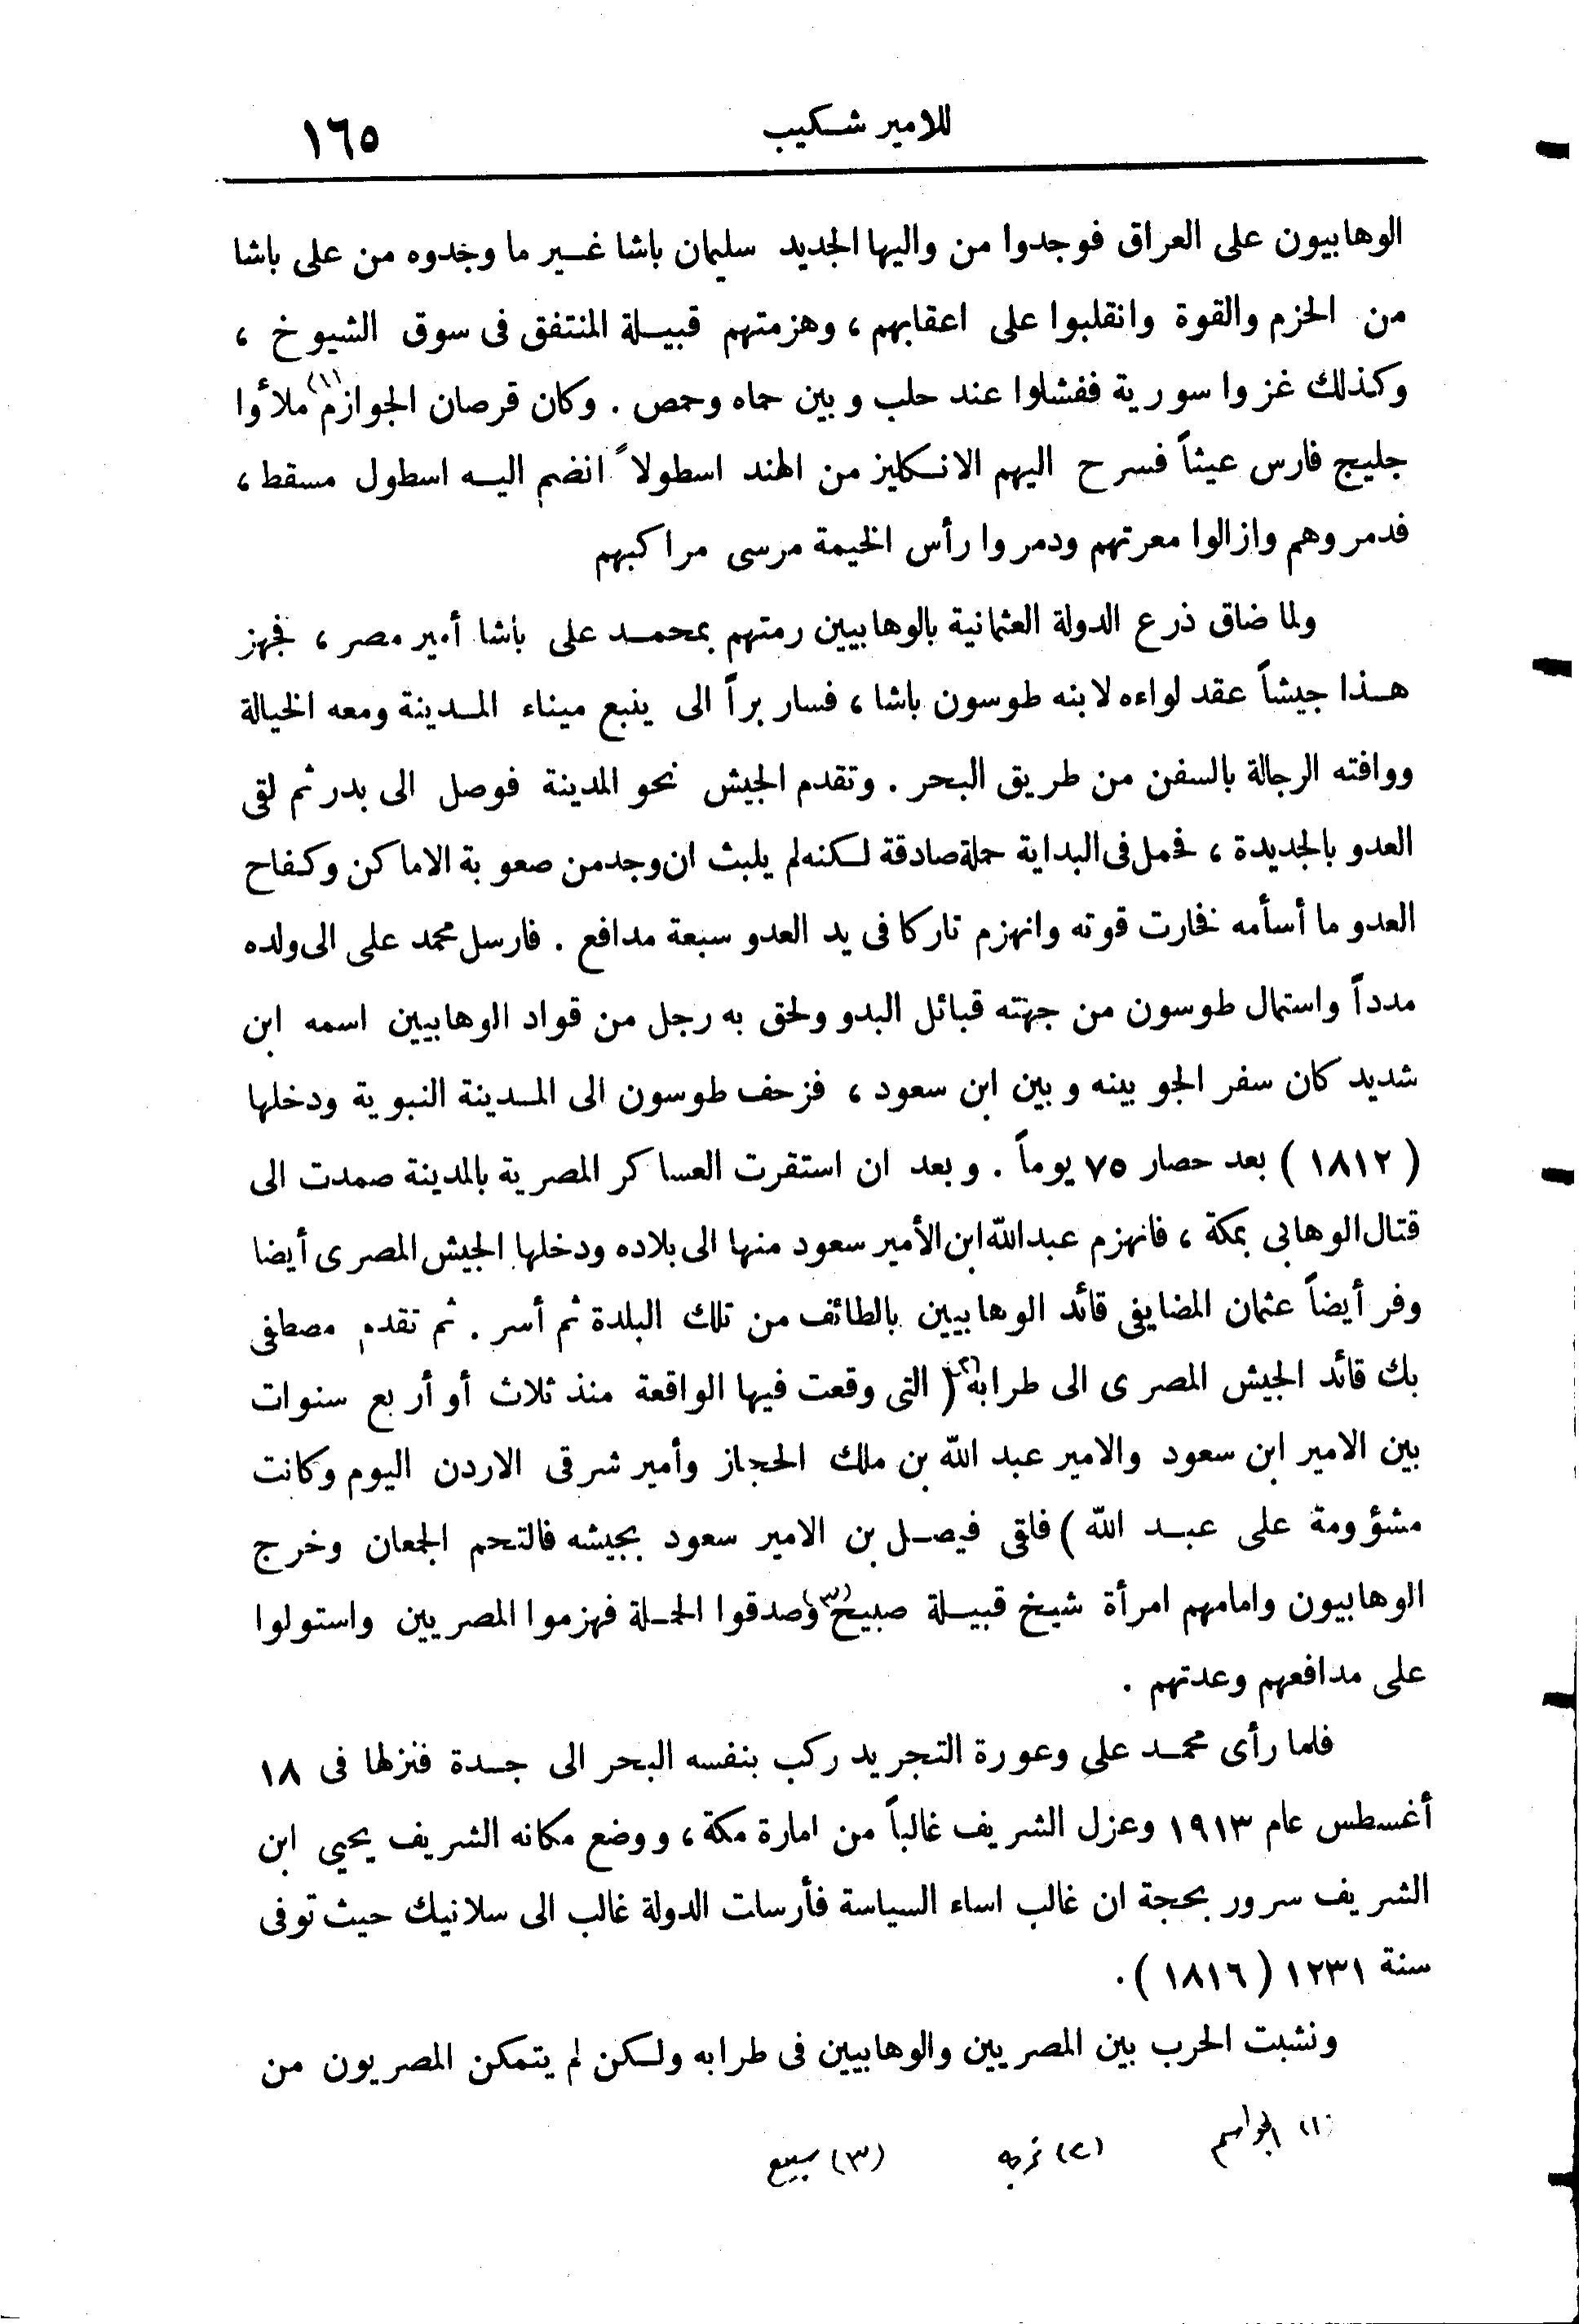 للامير شكيب ١٦٥
الوهابيون على العراق فوجدوا من واليها الجديد سليمان باشا غير ما وجدوه من على باشا
من الحزم والقوة وانقلبوا على اعقابهم ، وهزمتهم قبيلة المنتفق فى سوق الشيوخ ،
وكذلك غزوا سورية ففشلوا عند حلب وبين حماه وحمص . وكان قرصان الجوازم (١) ملأوا
جليج فارس عيثاً فسرح اليهم الانكليز من الهند اسطولاً انضم اليه اسطول مسقط ،
فدمروهم وازالوا معرتهم ودمروا رأس الخيمة مرسى مراكبهم
ولما ضاق ذرع الدولة العثمانية بالوهابيين رمتهم بمحمد على باشا أمير مصر ، فجهز
هذا جيشاً عقد لواءه لابنه طوسون باشا ، فسار براً الى ينبع ميناء المدينة ومعه الخيالة
ووافته الرجالة بالسفن من طريق البحر . وتقدم الجيش نحو المدينة فوصل الى بدر ثم لقى
العدو بالجديدة ، فحمل فى البداية حملة صادقة لكنه لم يلبث ان وجد من صعوبة الاماكن وكفاح
العدو ما أسأمه فخارت قوته وانهزم تاركا فى يد العدو سبعة مدافع . فارسل محمد على الى ولده
مدداً واستمال طوسون من جهته قبائل البدو ولحق به رجل من قواد الوهابيين اسمه ابن
شديد كان سفر الجو بينه وبين ابن سعود ، فزحف طوسون الى المدينة النبوية ودخلها
( ١٨١٢ ) بعد حصار ٧٥ يوماً . وبعد ان استقرت العساكر المصرية بالمدينة صمدت الى
قتال الوهابى بمكة ، فانهزم عبدالله ابن الأمير سعود منها الى بلاده ودخلها الجيش المصرى أيضا
وفر أيضاً عثمان المضايفى قائد الوهابيين بالطائف من تلك البلدة ثم أسر . ثم تقدم مصطفى
بك قائد الجيش المصرى الى طرابه (٢) ( التى وقعت فيها الواقعة منذ ثلاث أو أربع سنوات
بين الامير ابن سعود والامير عبد الله بن ملك الحجاز وأمير شرقى الاردن اليوم وكانت
مشؤومة على عبد الله ) فلقى فيصل بن الامير سعود بجيشه فالتحم الجمعان وخرج
الوهابيون وامامهم امرأة شيخ قبيلة صبيح (٣) وصدقوا الحملة فهزموا المصريين واستولوا
على مدافعهم وعدتهم .
فلما رأى محمد على وعورة التجريد ركب بنفسه البحر الى جدة فنزلها فى ١٨
أغسطس عام ١٩١٣ وعزل الشريف غالباً من امارة مكة ، ووضع مكانه الشريف يحيي ابن
الشريف سرور بحجة ان غالب اساء السياسة فأرسلت الدولة غالب الى سلانيك حيث توفى
سنة ١٢٣١ ( ١٨١٦ ) .
ونشبت الحرب بين المصريين والوهابيين فى طرابه ولكن لم يتمكن المصريون من
(١) الجواسم (٢) تربه (٣) سبيع